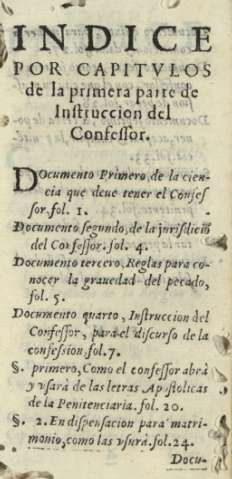 INDICE
POR CAPITVLOS
de la primera parte de
Instruccion del
Confessor.
Documento Primero, de la cien-
cia que deue tener el Confes
sor. fol. 1.
Documento segundo, de la jurisdiciō
del Confessor. fol. 4.
Documento tercero, Reglas para co-
nocer la grauedad del pecado,
fol. 5.
Documento quarto, Instruccion del
Confessor, para el discurso de la
confession fol. 7.
§. primero, Como el confessor abrà
y vsarà de las letras Apostolicas
de la Penitenciaria. fol. 20.
§. 2. En dispensacion para matri-
monio, como las vsurà. fol. 24.
Docu-